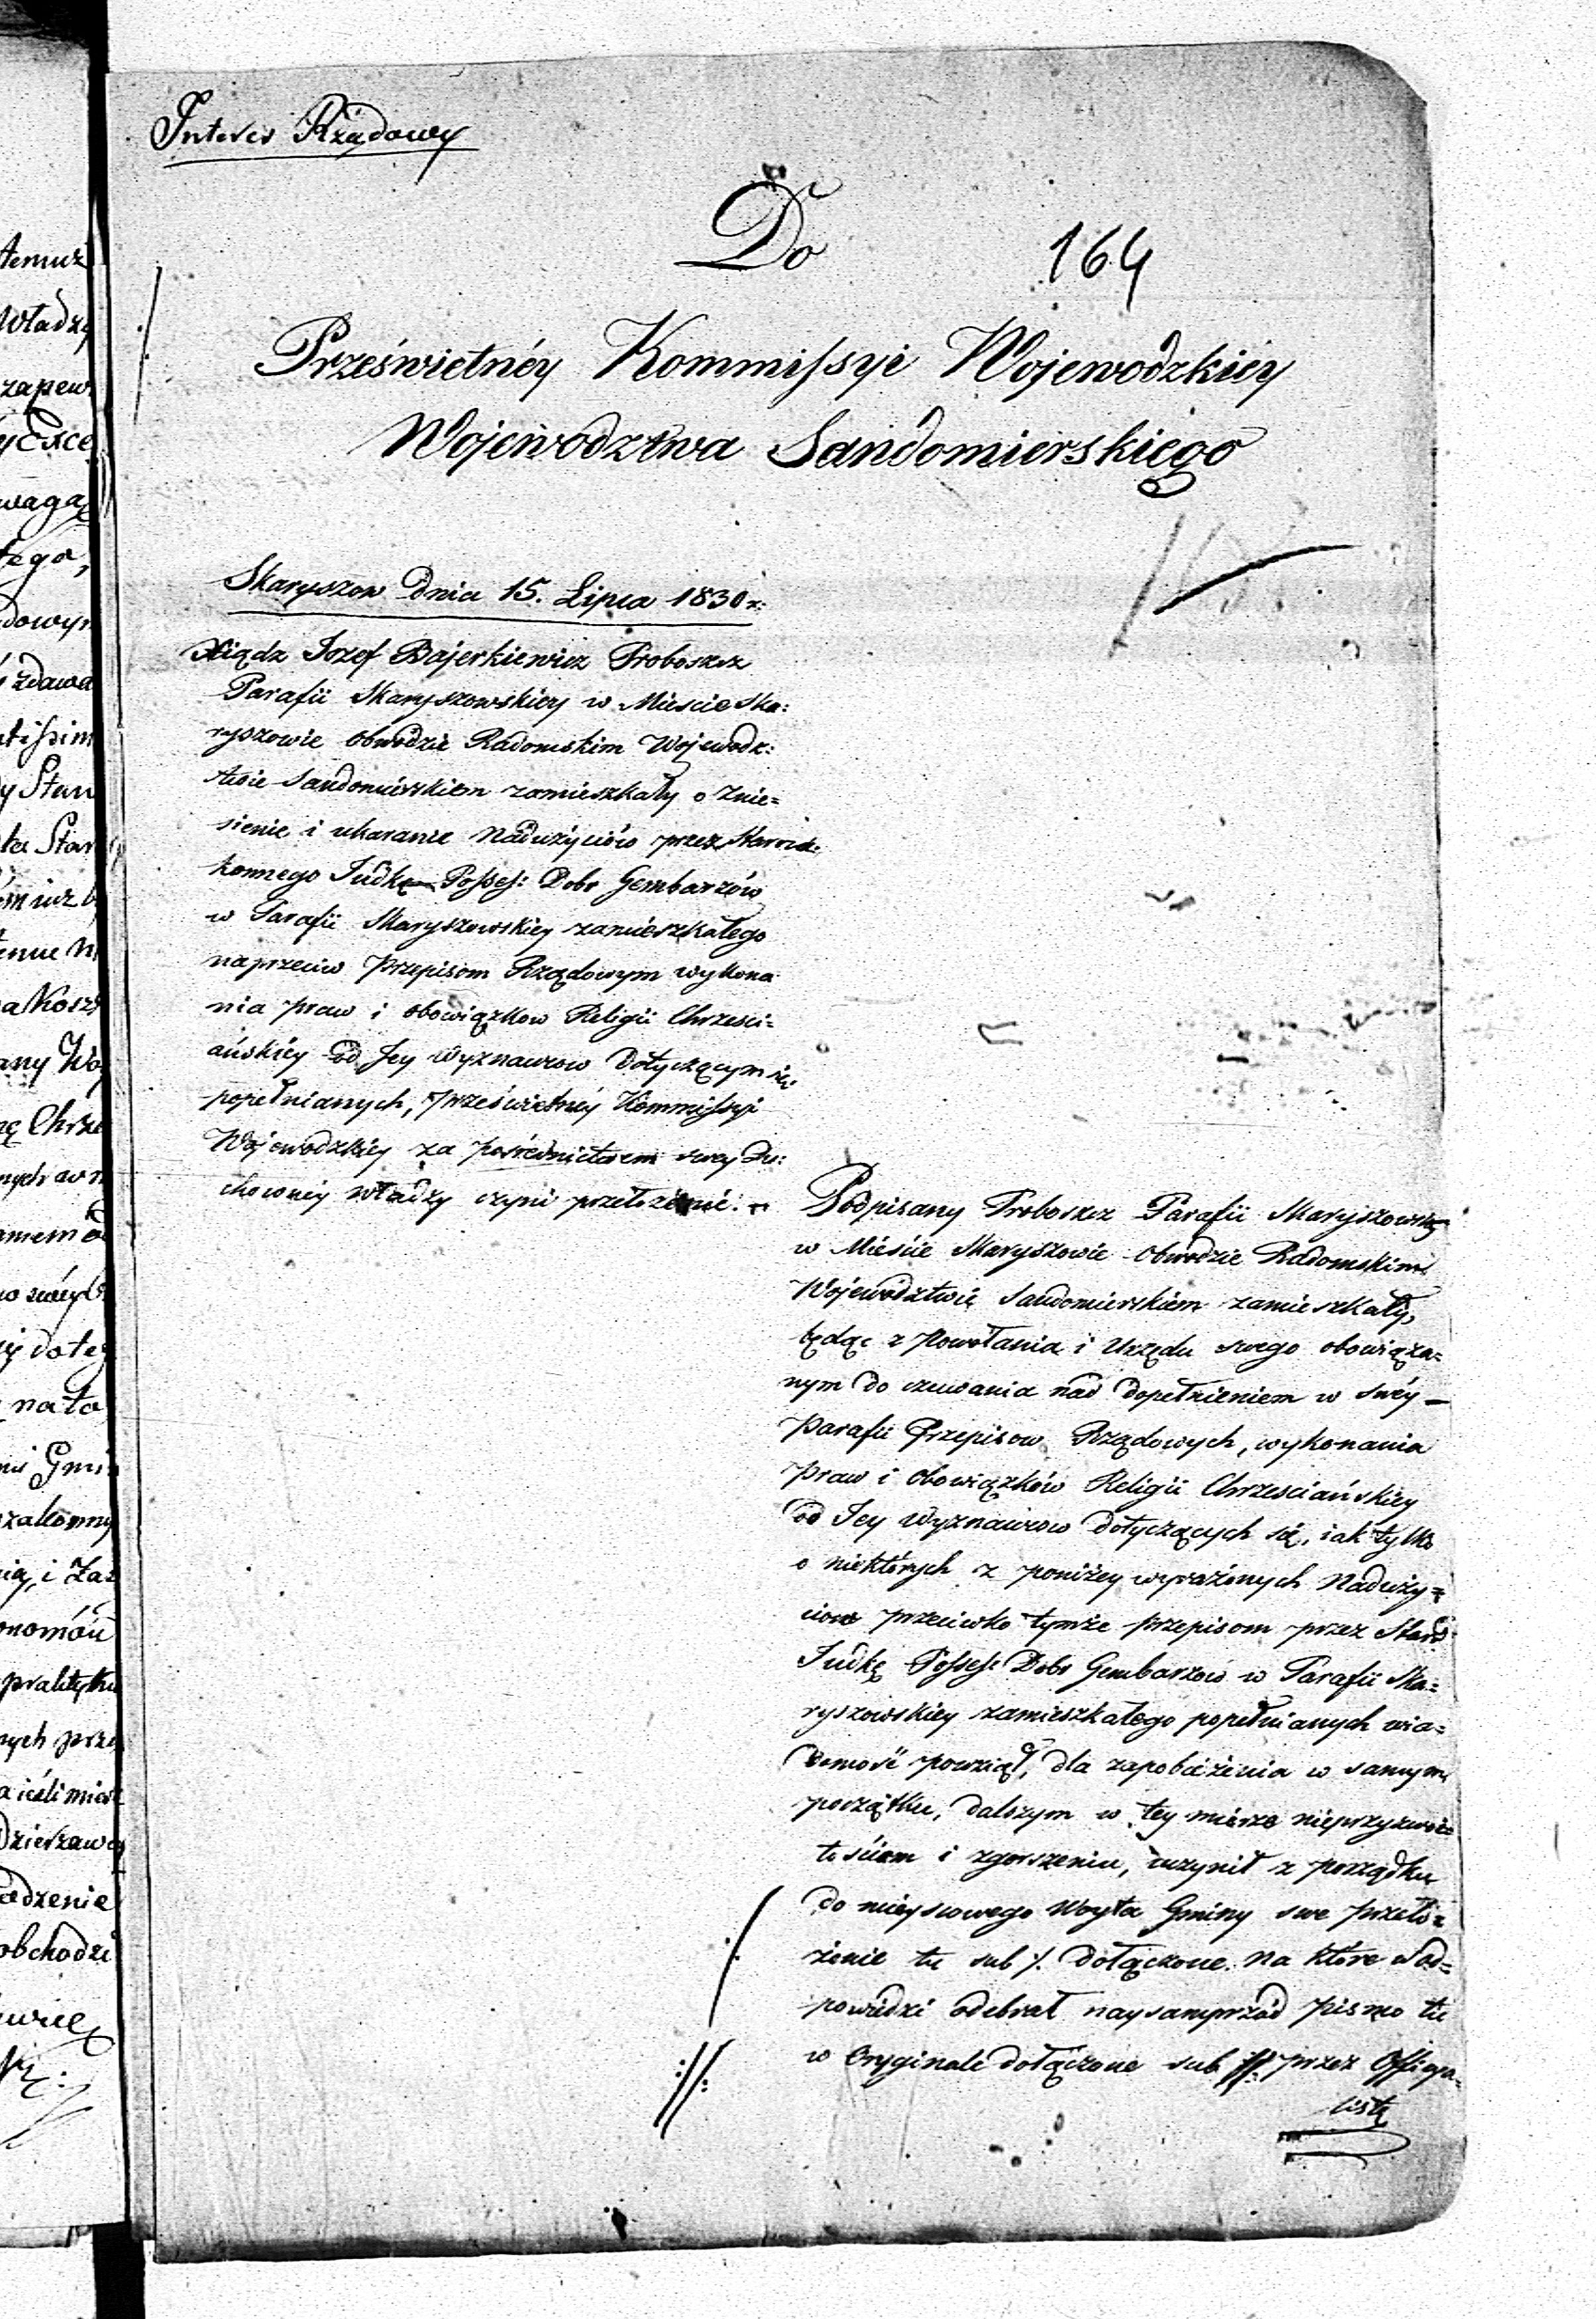 Interes Rządowy
Do
164
Prześwietnéy Kommissyi Wojewodzkiéy
Województwa Sandomierskiego
Skaryszow Dnia 15. Lipca 1830 r:
Xiądz Jozef Bajerkiewicz Proboszcz
Parafii Skaryszowskiey w Mieście Ska:
ryszowie Obwodzie Radomskim Wojewodz:
twie Sandomierskiem zamieszkały o Znie=
sienie i ukaranie Nadużyciów przez Staroza:
konnego Judkę Posses: Dobr Gembarzów
w Parafii Skaryszowskiey zamieszkałego
naprzeciw Przepisom Rządowym wykona
nia praw i obowiązkow Religii Chrzesci=
ańskiéy od Jey Wyznawcow Dotyczącym się
popełnianych, Prześwietnéy Kommissyi
Wojewodzkiéy za pośrednictwem swey Du:
chowney Władzy czyni przełożenie.
Podpisany Proboszcz Parafii Skaryszowskiey
w Mieście Skaryszowie Obwodzie Radomskim
Województwie Sandomierskiem zamieszkały,
będąc z Powołania i Urzędu swego obowiąza=
nym do czuwania nad dopełnieniem w swéy
Parafii Przepisow Rządowych, wykonania
Praw i Obowiązków Religii Chrzesciańskiey
od Jey Wyznawcow dotyczących się, iak tylko
o niektórych z poniżey wyrażonych Naduży=
ciow przeciwko tymże przepisom przez Staro:
Judkę Posses: Dobr Gembarzow w Parafii Ska=
ryszowskiey zamieszkałego popełnianych wia=
domość powziął, dla zapobieżenia w samym
początku, dalszym w tey mierze nieprzyzwoi=
tościom i zgorszeniu, uczynił z porządku
do mieyscowego Woyta Gminy swe przeło=
żenie tu sub ./. dołączone. Na które w od=
powiedzi odebrał naysamprzód pismo tu
w Oryginale dołączone sub .//. przez Officya=
listę
./.
.//.